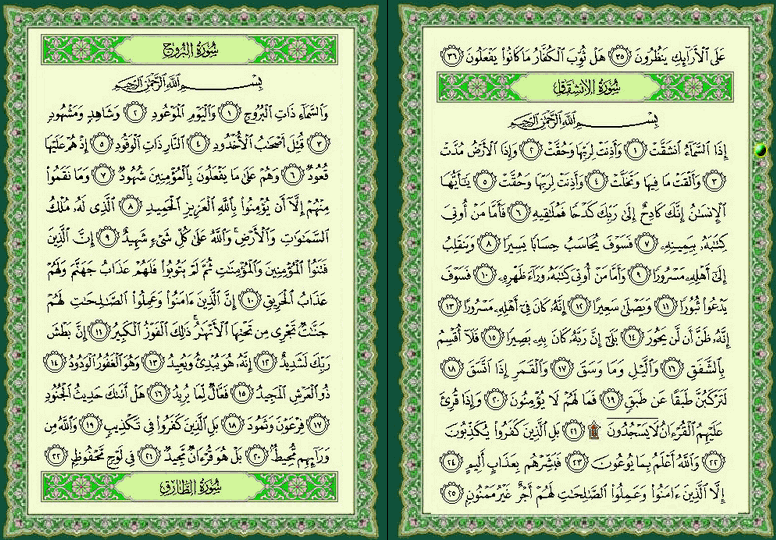 عَلَى ٱلْأَرَآئِكِ يَنظُرُونَ ٣٥ هَلْ ثُوِّبَ ٱلْكُفَّارُ مَا كَانُوا۟ يَفْعَلُونَ ٣٦
سُورَةُ الانشِقَاقِ
بِسْمِ ٱللَّهِ ٱلرَّحْمَٰنِ ٱلرَّحِيمِ
إِذَا ٱلسَّمَآءُ ٱنشَقَّتْ ١ وَأَذِنَتْ لِرَبِّهَا وَحُقَّتْ ٢ وَإِذَا ٱلْأَرْضُ مُدَّتْ
٣ وَأَلْقَتْ مَا فِيهَا وَتَخَلَّتْ ٤ وَأَذِنَتْ لِرَبِّهَا وَحُقَّتْ ٥ يَٰٓأَيُّهَا
ٱلْإِنسَٰنُ إِنَّكَ كَادِحٌ إِلَىٰ رَبِّكَ كَدْحًا فَمُلَٰقِيهِ ٦ فَأَمَّا مَنْ أُوتِىَ
كِتَٰبَهُۥ بِيَمِينِهِۦ ٧ فَسَوْفَ يُحَاسَبُ حِسَابًا يَسِيرًا ٨ وَيَنقَلِبُ
إِلَىٰٓ أَهْلِهِۦ مَسْرُورًا ٩ وَأَمَّا مَنْ أُوتِىَ كِتَٰبَهُۥ وَرَآءَ ظَهْرِهِۦ ١٠ فَسَوْفَ
يَدْعُوا۟ ثُبُورًا ١١ وَيَصْلَىٰ سَعِيرًا ١٢ إِنَّهُۥ كَانَ فِىٓ أَهْلِهِۦ مَسْرُورًا ١٣
إِنَّهُۥ ظَنَّ أَن لَّن يَحُورَ ١٤ بَلَىٰٓ إِنَّ رَبَّهُۥ كَانَ بِهِۦ بَصِيرًا ١٥ فَلَآ أُقْسِمُ
بِٱلشَّفَقِ ١٦ وَٱلَّيْلِ وَمَا وَسَقَ ١٧ وَٱلْقَمَرِ إِذَا ٱتَّسَقَ ١٨
لَتَرْكَبُنَّ طَبَقًا عَن طَبَقٍ ١٩ فَمَا لَهُمْ لَا يُؤْمِنُونَ ٢٠ وَإِذَا قُرِئَ
عَلَيْهِمُ ٱلْقُرْءَانُ لَا يَسْجُدُونَ ۩ ٢١ بَلِ ٱلَّذِينَ كَفَرُوا۟ يُكَذِّبُونَ
٢٢ وَٱللَّهُ أَعْلَمُ بِمَا يُوعُونَ ٢٣ فَبَشِّرْهُم بِعَذَابٍ أَلِيمٍ ٢٤
إِلَّا ٱلَّذِينَ ءَامَنُوا۟ وَعَمِلُوا۟ ٱلصَّٰلِحَٰتِ لَهُمْ أَجْرٌ غَيْرُ مَمْنُونٍۭ ٢٥
سُورَةُ البُرُوجِ
بِسْمِ ٱللَّهِ ٱلرَّحْمَٰنِ ٱلرَّحِيمِ
وَٱلسَّمَآءِ ذَاتِ ٱلْبُرُوجِ ١ وَٱلْيَوْمِ ٱلْمَوْعُودِ ٢ وَشَاهِدٍ وَمَشْهُودٍ
٣ قُتِلَ أَصْحَٰبُ ٱلْأُخْدُودِ ٤ ٱلنَّارِ ذَاتِ ٱلْوَقُودِ ٥ إِذْ هُمْ عَلَيْهَا
قُعُودٌ ٦ وَهُمْ عَلَىٰ مَا يَفْعَلُونَ بِٱلْمُؤْمِنِينَ شُهُودٌ ٧ وَمَا نَقَمُوا۟
مِنْهُمْ إِلَّآ أَن يُؤْمِنُوا۟ بِٱللَّهِ ٱلْعَزِيزِ ٱلْحَمِيدِ ٨ ٱلَّذِى لَهُۥ مُلْكُ
ٱلسَّمَٰوَٰتِ وَٱلْأَرْضِ ۚ وَٱللَّهُ عَلَىٰ كُلِّ شَىْءٍ شَهِيدٌ ٩ إِنَّ ٱلَّذِينَ
فَتَنُوا۟ ٱلْمُؤْمِنِينَ وَٱلْمُؤْمِنَٰتِ ثُمَّ لَمْ يَتُوبُوا۟ فَلَهُمْ عَذَابُ جَهَنَّمَ وَلَهُمْ
عَذَابُ ٱلْحَرِيقِ ١٠ إِنَّ ٱلَّذِينَ ءَامَنُوا۟ وَعَمِلُوا۟ ٱلصَّٰلِحَٰتِ لَهُمْ
جَنَّٰتٌ تَجْرِى مِن تَحْتِهَا ٱلْأَنْهَٰرُ ۚ ذَٰلِكَ ٱلْفَوْزُ ٱلْكَبِيرُ ١١ إِنَّ بَطْشَ
رَبِّكَ لَشَدِيدٌ ١٢ إِنَّهُۥ هُوَ يُبْدِئُ وَيُعِيدُ ١٣ وَهُوَ ٱلْغَفُورُ ٱلْوَدُودُ ١٤
ذُو ٱلْعَرْشِ ٱلْمَجِيدُ ١٥ فَعَّالٌ لِّمَا يُرِيدُ ١٦ هَلْ أَتَىٰكَ حَدِيثُ ٱلْجُنُودِ
١٧ فِرْعَوْنَ وَثَمُودَ ١٨ بَلِ ٱلَّذِينَ كَفَرُوا۟ فِى تَكْذِيبٍ ١٩ وَٱللَّهُ مِن
وَرَآئِهِم مُّحِيطٌۢ ٢٠ بَلْ هُوَ قُرْءَانٌ مَّجِيدٌ ٢١ فِى لَوْحٍ مَّحْفُوظٍۭ ٢٢
سُورَةُ الطَّارِقِ